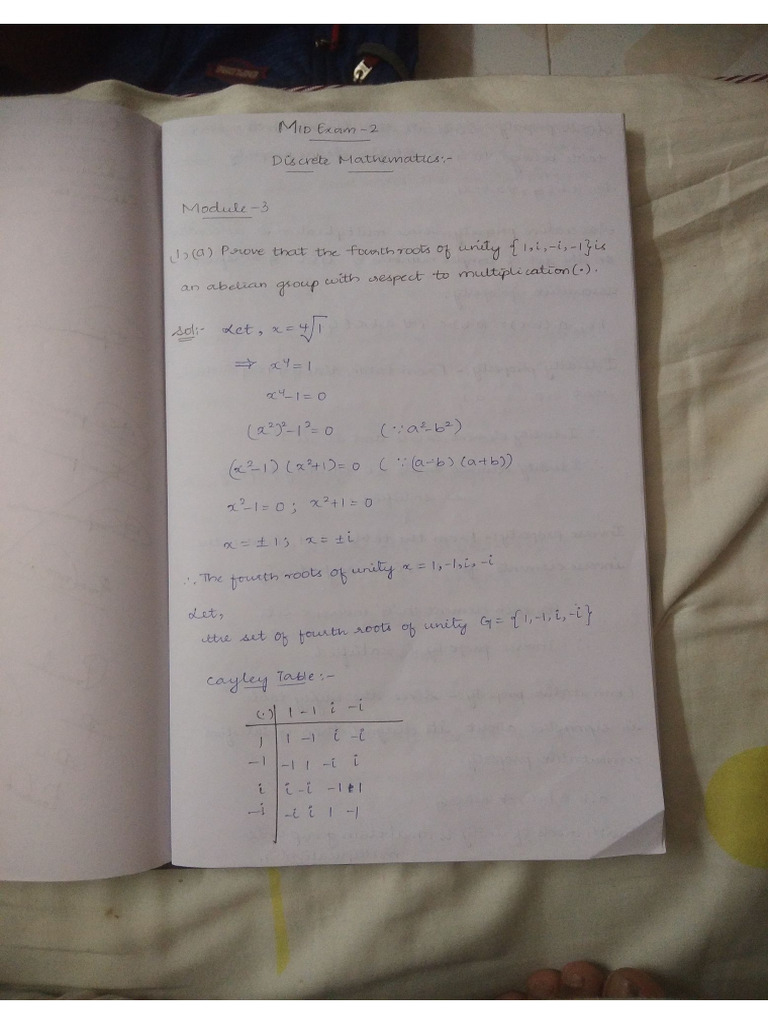 MID Exam-2
Discrete Mathematics:-
Module-3
1,(a) Prove that the fourth roots of unity {1,i,-i,-1} is
an abelian group with respect to multiplication(•).
Sol:- Let, x = ⁴√1
⇒ x⁴ = 1
x⁴-1 = 0
(x²)²-1² = 0 (∵ a²-b²)
(x²-1) (x²+1) = 0 (∵ (a-b) (a+b))
x²-1 = 0 ; x²+1 = 0
x = ±1 ; x = ±i
∴ The fourth roots of unity x = 1,-1,i,-i
Let,
the set of fourth roots of unity G = {1,-1,i,-i}
Cayley Table:-
(·) 1 -1 i -i
1 1 -1 i -i
-1 -1 1 -i i
i i -i -1 1
-i -i i 1 -1